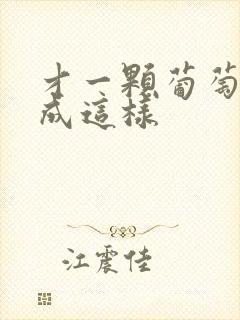 才一顆葡萄
成這樣
江震佳